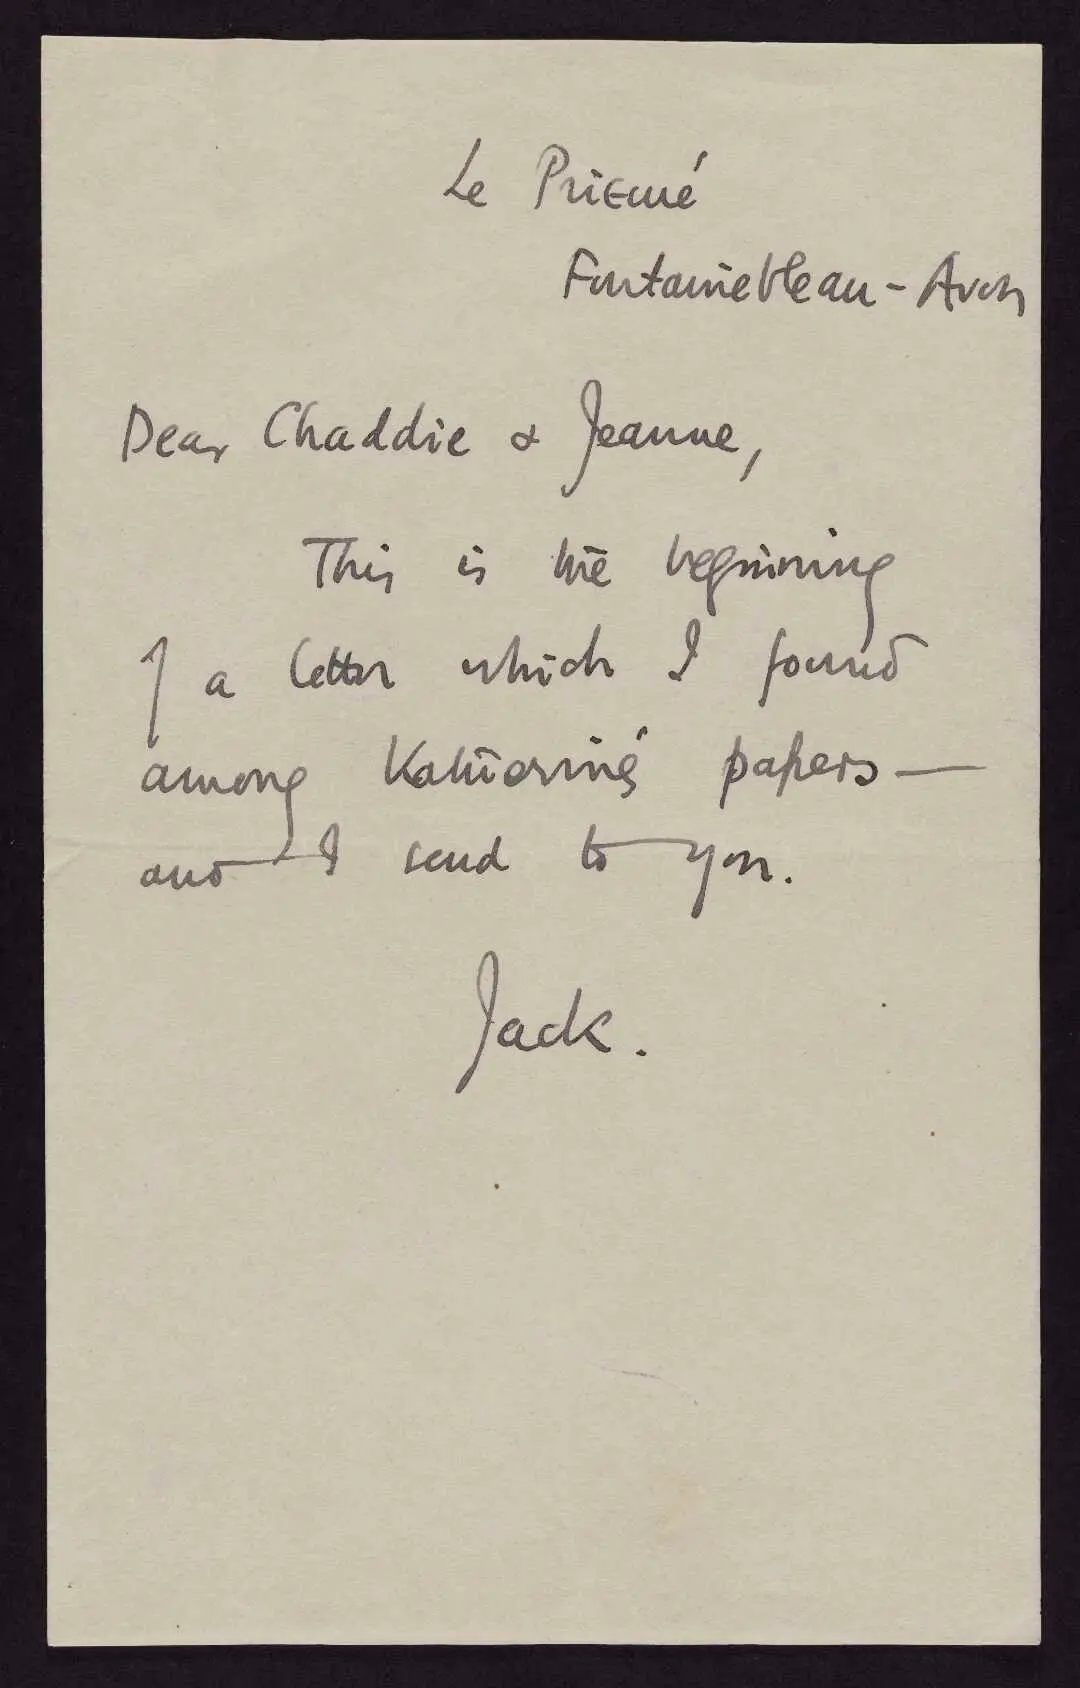 Le Prieuré
Fontainebleau - Avon
Dear Chaddie & Jeanne,
This is the beginning
of a letter which I found
among Katherine's papers —
and I send to you.
Jack.